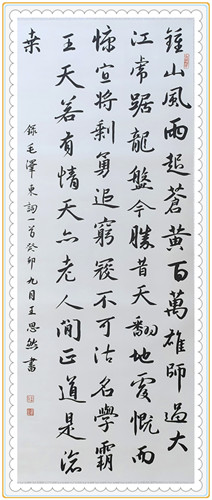 鍾山風雨起蒼黃百萬雄師過大
江虎踞龍盤今勝昔天翻地覆慨而
慷宜將剩勇追窮寇不可沽名學霸
王天若有情天亦老人間正道是滄
桑
錄毛澤東詞一首癸卯九月王思然書